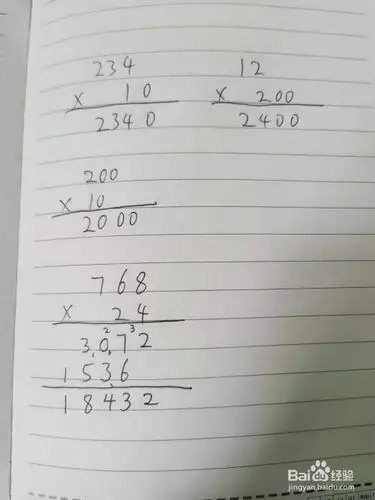 234
× 10
2340
12
× 200
2400
200
× 10
2000
768
× 24
3072
1536
18432
Baidu 经验
jingyan.baidu.com